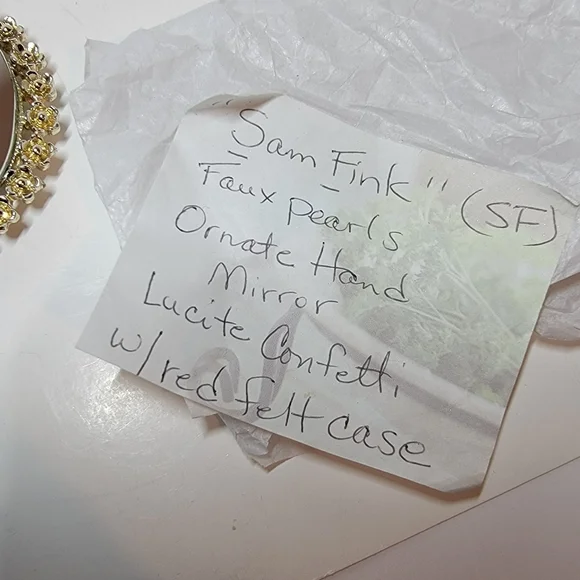 "Sam Fink" (SF)
Faux pearls
Ornate Hand
Mirror
Lucite Confetti
w/red felt case